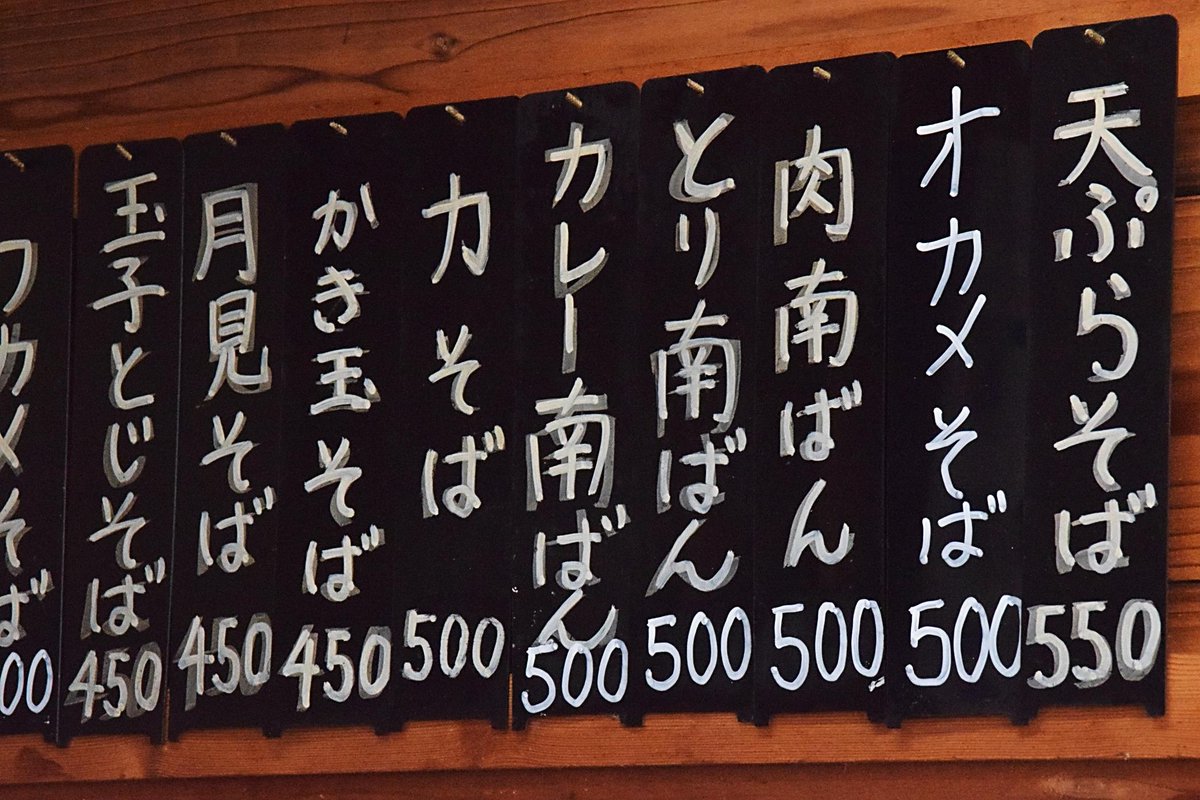 天ぷらそば
550
オカメそば
500
肉南ばん
500
とり南ばん
500
カレー南ばん
500
力そば
500
かき玉そば
450
月見そば
450
玉子とじそば
450
ワカメそば
00